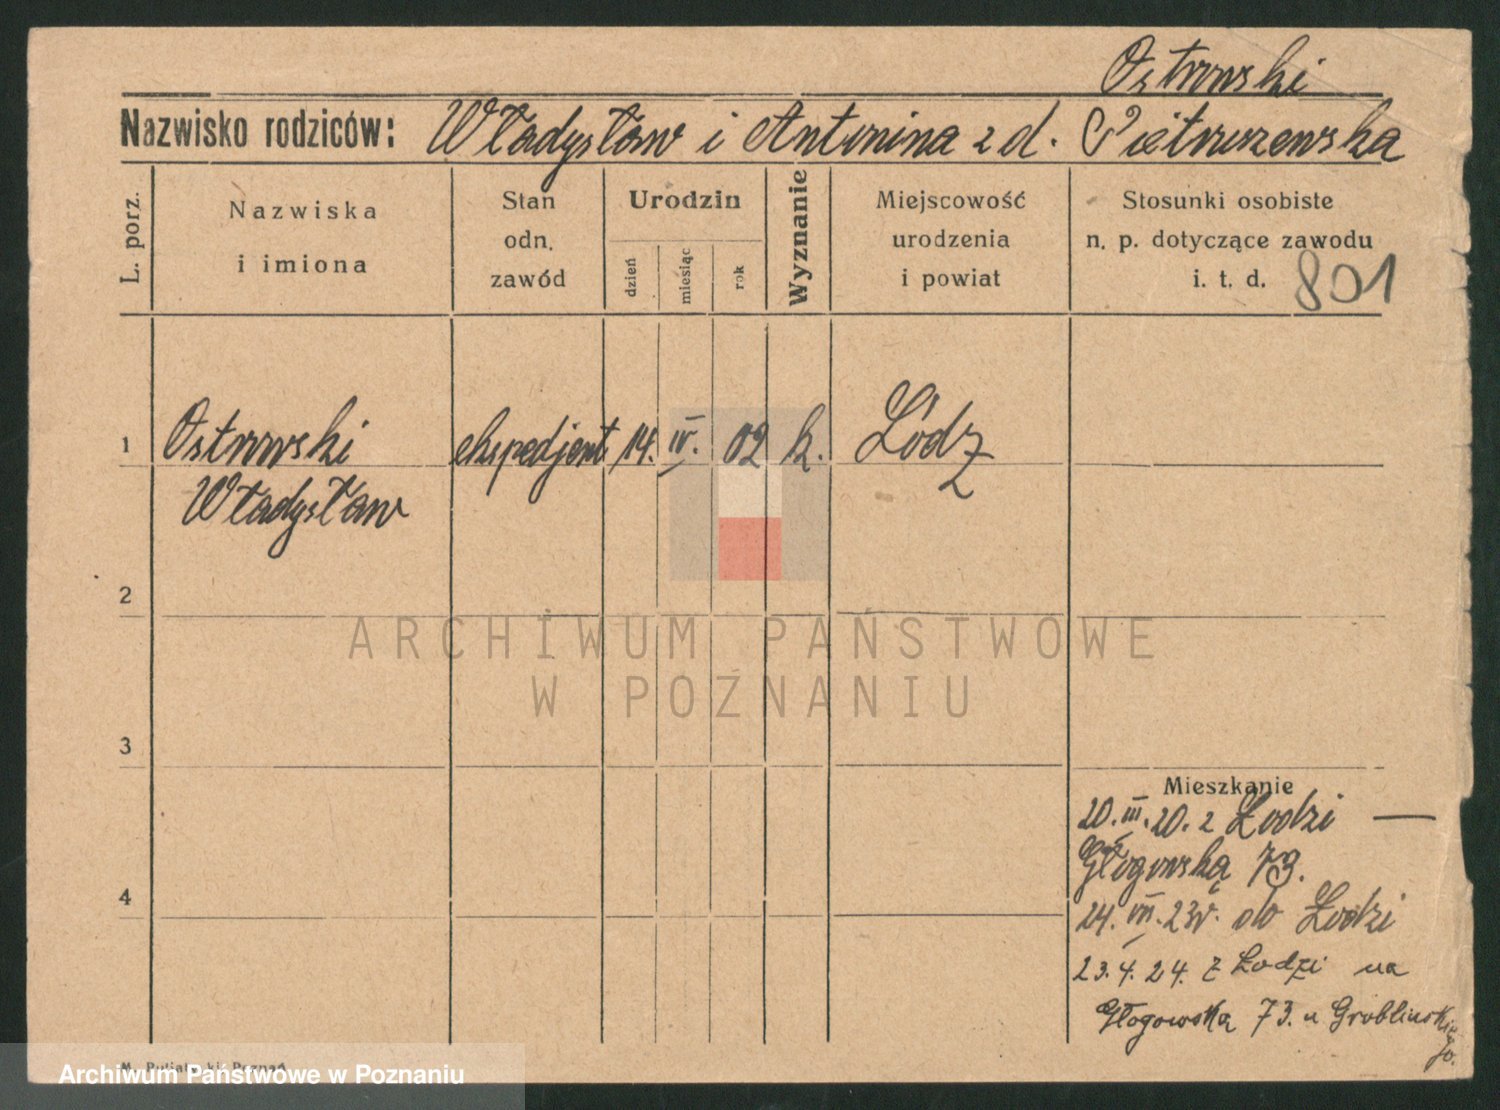 Ostrowski
Nazwisko rodziców: Władysław i Antonina z d. Pietruszewska
L. porz.
Nazwiska
i imiona
Stan
odn.
zawód
Urodzin
dzień
miesiąc
rok
Wyznanie
Miejscowość
urodzenia
i powiat
Stosunki osobiste
n. p. dotyczące zawodu
i. t. d. 801
1 Ostrowski ekspedjent 14. IV. 02 k. Łódź
Władysław
2
ARCHIWUM PAŃSTWOWE
W POZNANIU
3
Mieszkanie
20.III.20. z Łodzi —
Głogowska 73.
24. VII. 23r. do Łodzi
23.4.24. z Łodzi na
Głogowska 73. u Groblińskiego.
4
Poznań
Archiwum Państwowe w Poznaniu